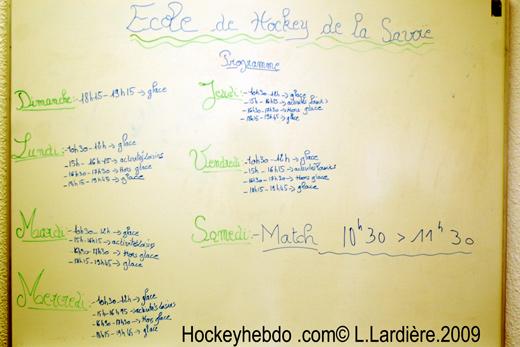 Ecole de Hockey de la Savoie
Programme
Dimanche:- 18h15-19h15 → glace
Lundi:- 10h30-12h → glace
- 15h - 16h15 → activités loisirs
- 16h30 - 17h30 → Hors glace
- 18h15 - 19h45 → glace
Mardi:- 10h30-12h → glace
- 15h-16h15 → activités loisirs
16h30-17h30 → Hors glace
- 18h15-19h45 → glace
Mercredi:- 10h30-12h → glace
- 15h-16h15 → activités loisirs
- 16h30-17h30 → Hors glace
- 18h15-19h45 → glace
Jeudi:- 10h30-12h → glace
- 15h-16h → activités loisirs
- 16h30-17h30 → Hors glace
- 18h15-19h45 → glace
Vendredi:- 10h30-12h → glace
- 15h-16h → activités loisirs
- 16h30-17h30 → Hors glace
- 18h15-19h45 → glace
Samedi:- Match 10h30 > 11h30
Hockeyhebdo .com© L.Lardière.2009